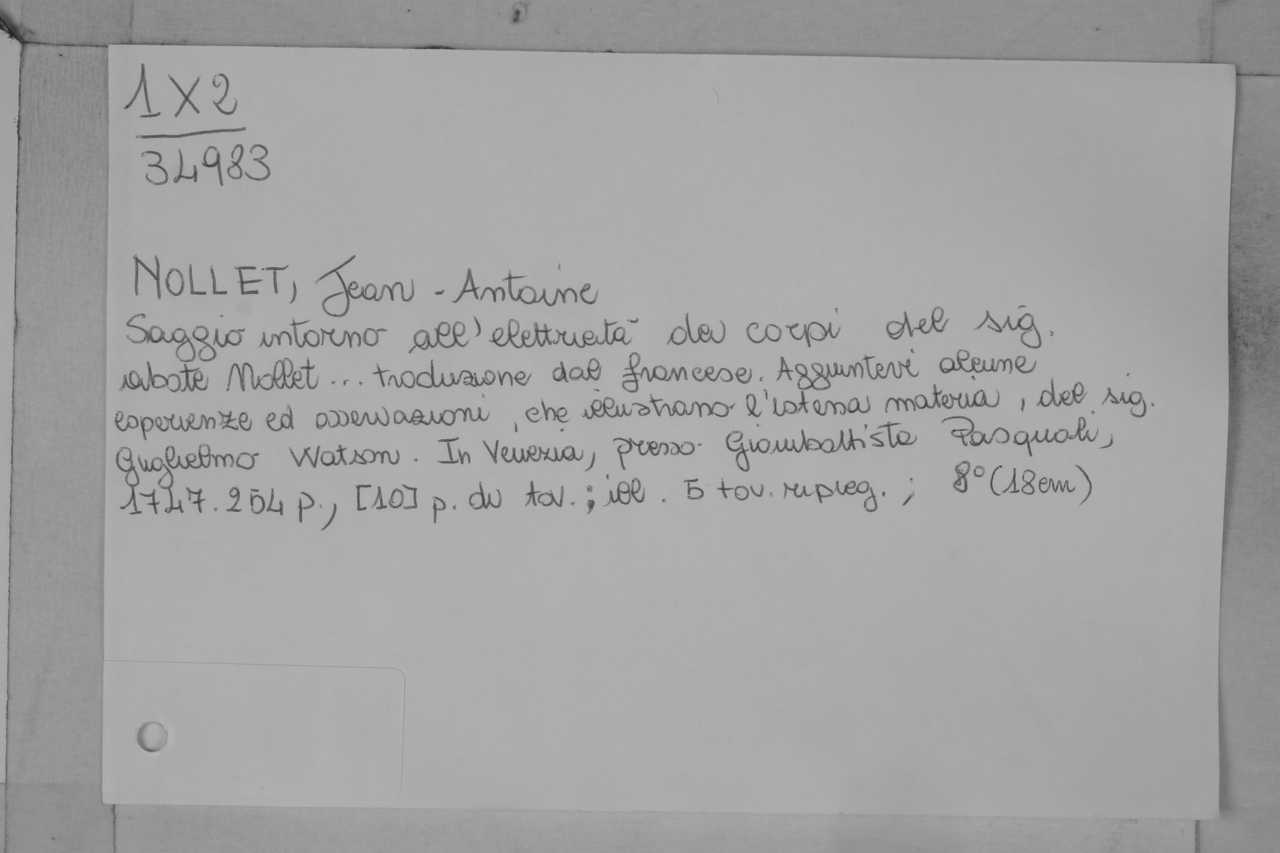 1X2
34983
NOLLET, Jean-Antoine
Saggio intorno all'elettricità dei corpi del sig.
abate Nollet ... traduzione dal francese. Aggiuntevi alcune
esperienze ed osservazioni, che illustrano l'istessa materia, del sig.
Guglielmo Watson. In Venezia, presso Giambattista Pasquali,
1747. 254 p., [10] p. di tav. ; ill. 5 tav. ripieg. ; 8° (18 cm)